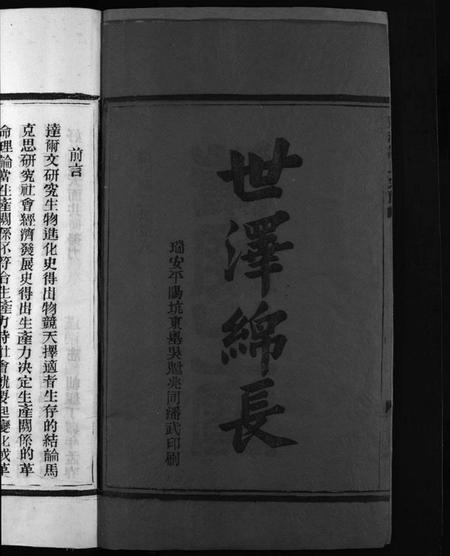 世澤綿長
瑞安平陽坑東㠙吳贈兆同潘武印刷
前言
達爾文研究生物進化史得出物競天擇適者生存的結論馬
克思研究社會經濟發展史得出生產力決定生產關係的革
命理論當生產關係不符合生產力時社會就要起變化或革